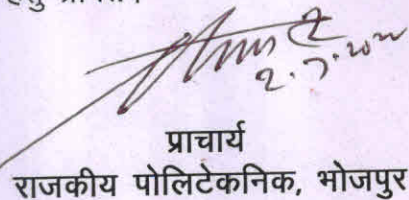 2.7.20
प्राचार्य
राजकीय पोलिटेकनिक, भोजपुर